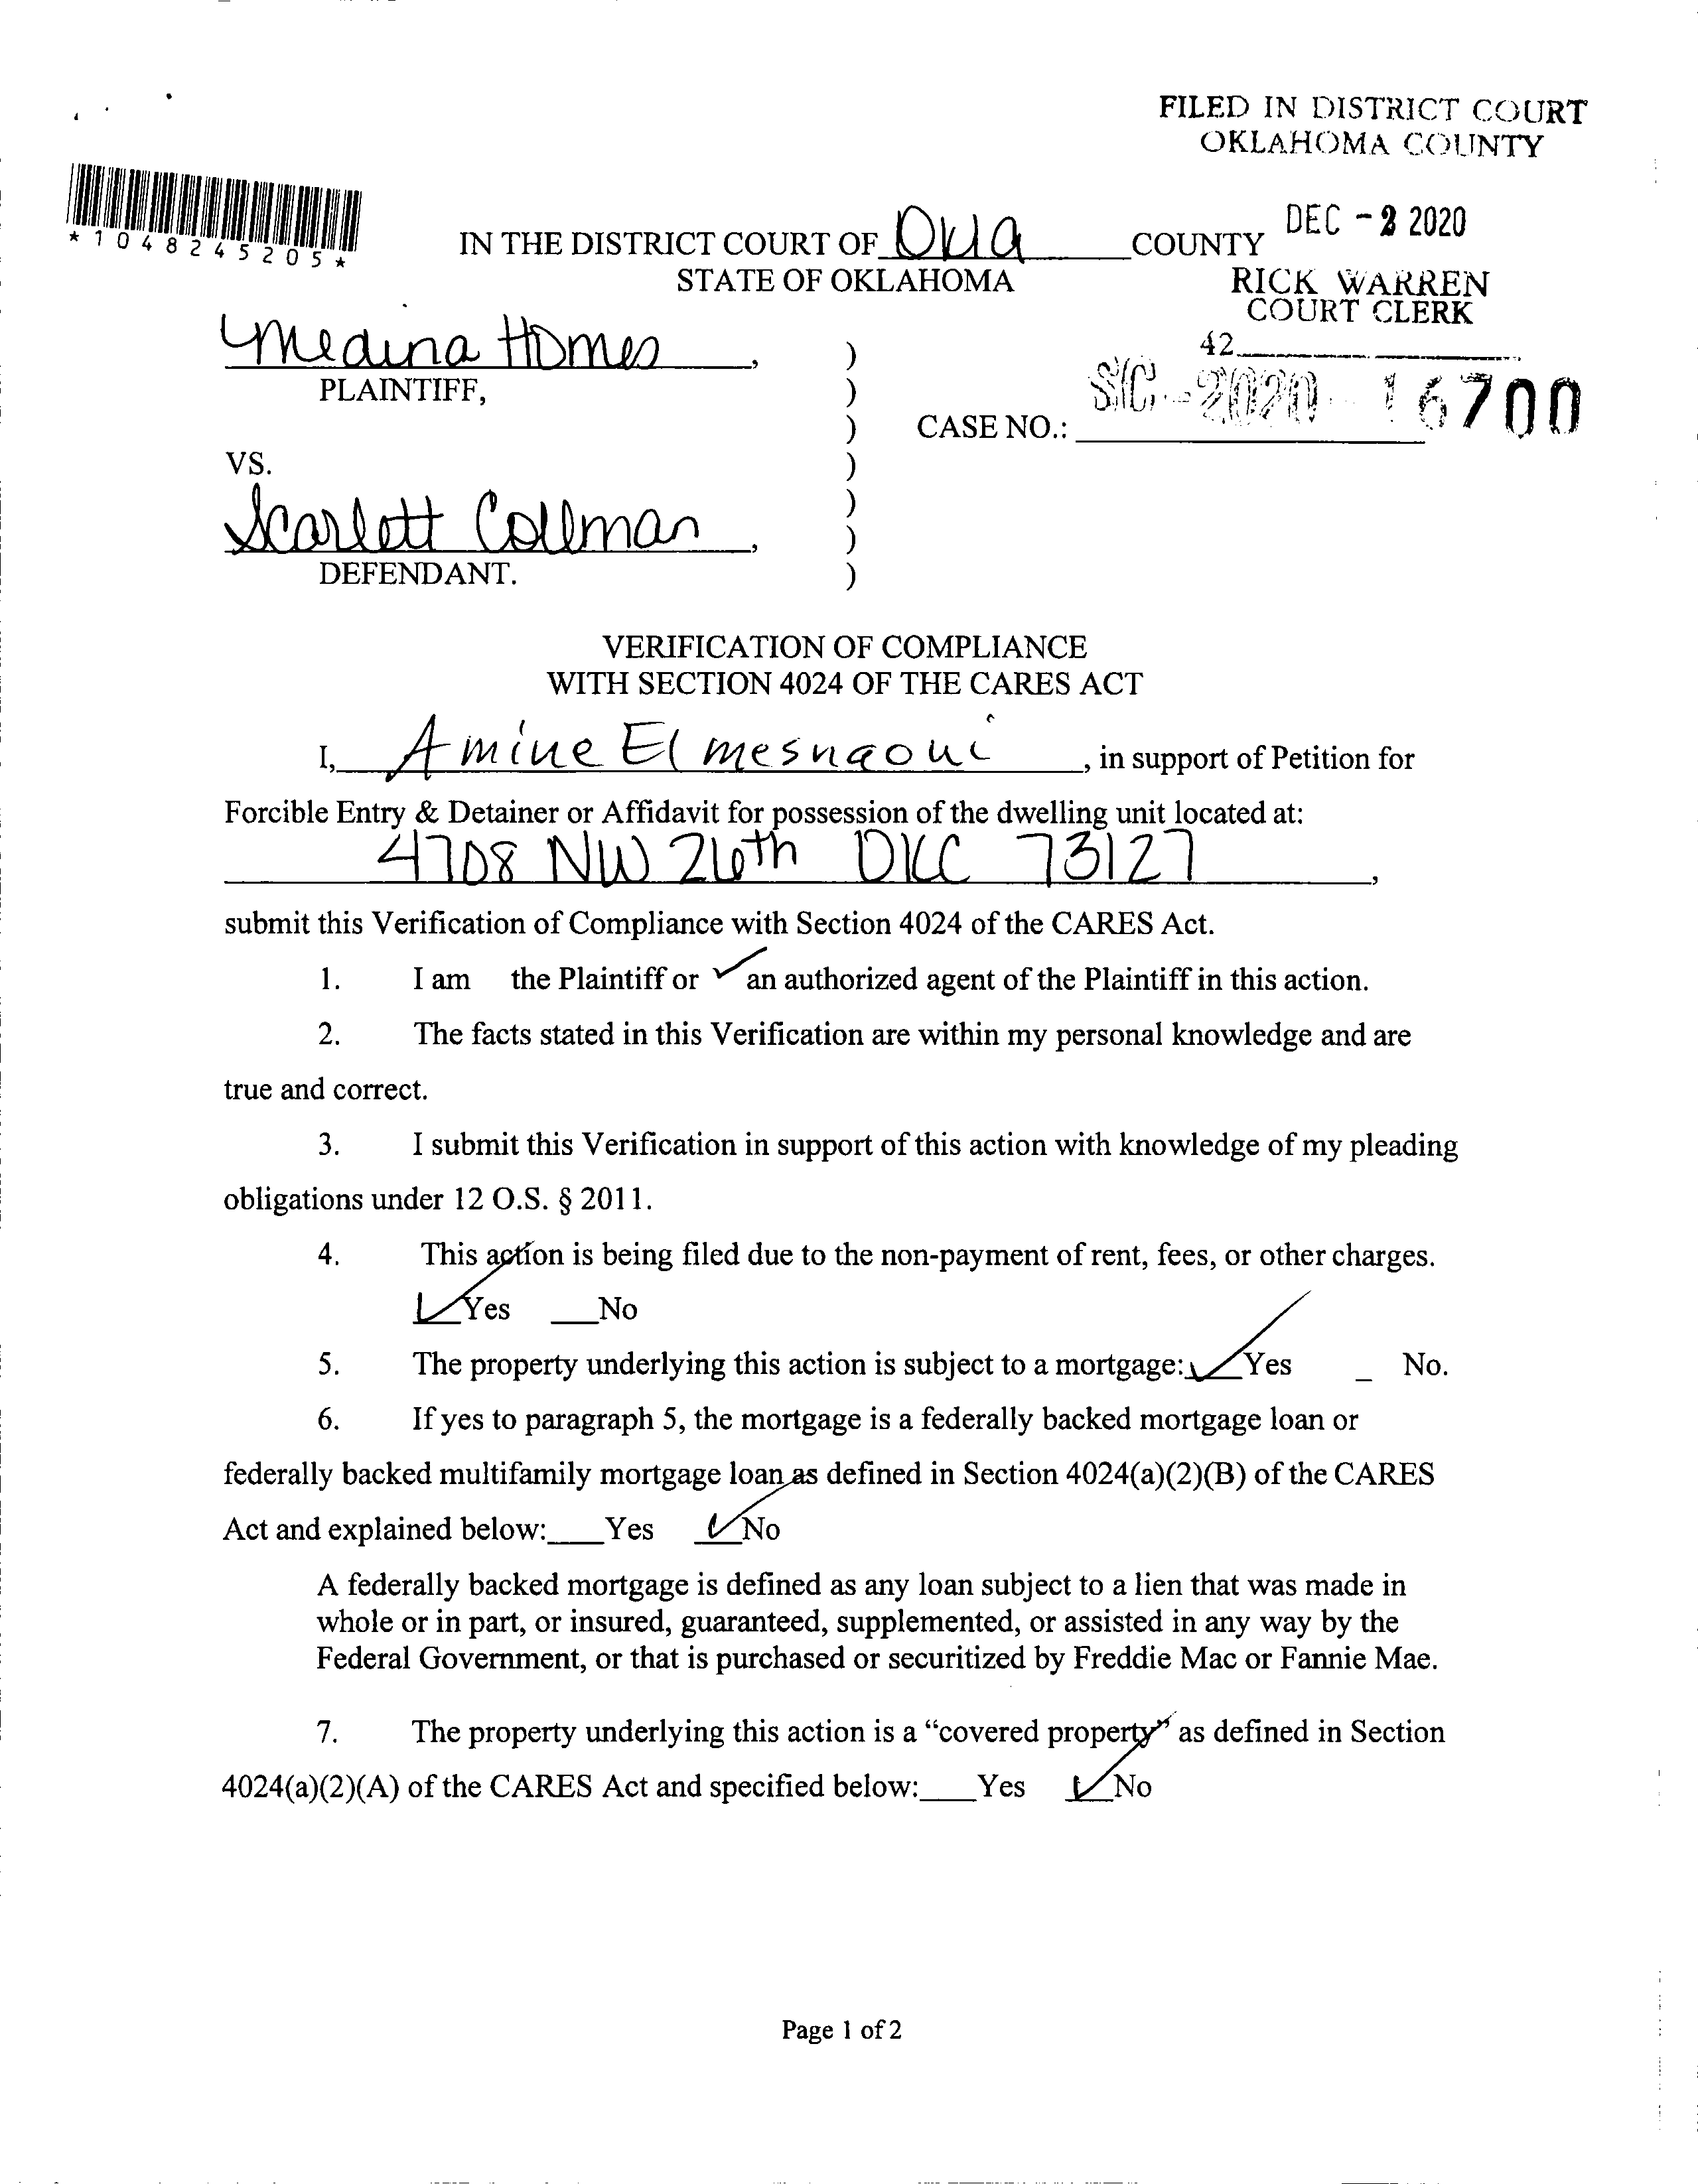 FILED IN DISTRICT COURT
OKLAHOMA COUNTY
DEC - 2 2020
RICK WARREN
COURT CLERK
42
*1048245205*
IN THE DISTRICT COURT OF Okla COUNTY
STATE OF OKLAHOMA
Medina Homes,
PLAINTIFF,
VS.
Scarlett Collman,
DEFENDANT.
)
)
)
)
)
)
)
CASE NO.: SC-2020-16700
VERIFICATION OF COMPLIANCE
WITH SECTION 4024 OF THE CARES ACT
I, Amine Elmesnaoui, in support of Petition for
Forcible Entry & Detainer or Affidavit for possession of the dwelling unit located at:
4708 NW 26th OKC 73127,
submit this Verification of Compliance with Section 4024 of the CARES Act.
1. I am the Plaintiff or ✓ an authorized agent of the Plaintiff in this action.
2. The facts stated in this Verification are within my personal knowledge and are
true and correct.
3. I submit this Verification in support of this action with knowledge of my pleading
obligations under 12 O.S. § 2011.
4. This action is being filed due to the non-payment of rent, fees, or other charges.
✓ Yes ___No
5. The property underlying this action is subject to a mortgage: ✓ Yes _ No.
6. If yes to paragraph 5, the mortgage is a federally backed mortgage loan or
federally backed multifamily mortgage loan as defined in Section 4024(a)(2)(B) of the CARES
Act and explained below:___Yes ✓ No
A federally backed mortgage is defined as any loan subject to a lien that was made in
whole or in part, or insured, guaranteed, supplemented, or assisted in any way by the
Federal Government, or that is purchased or securitized by Freddie Mac or Fannie Mae.
7. The property underlying this action is a “covered property” as defined in Section
4024(a)(2)(A) of the CARES Act and specified below:___Yes ✓ No
Page 1 of 2